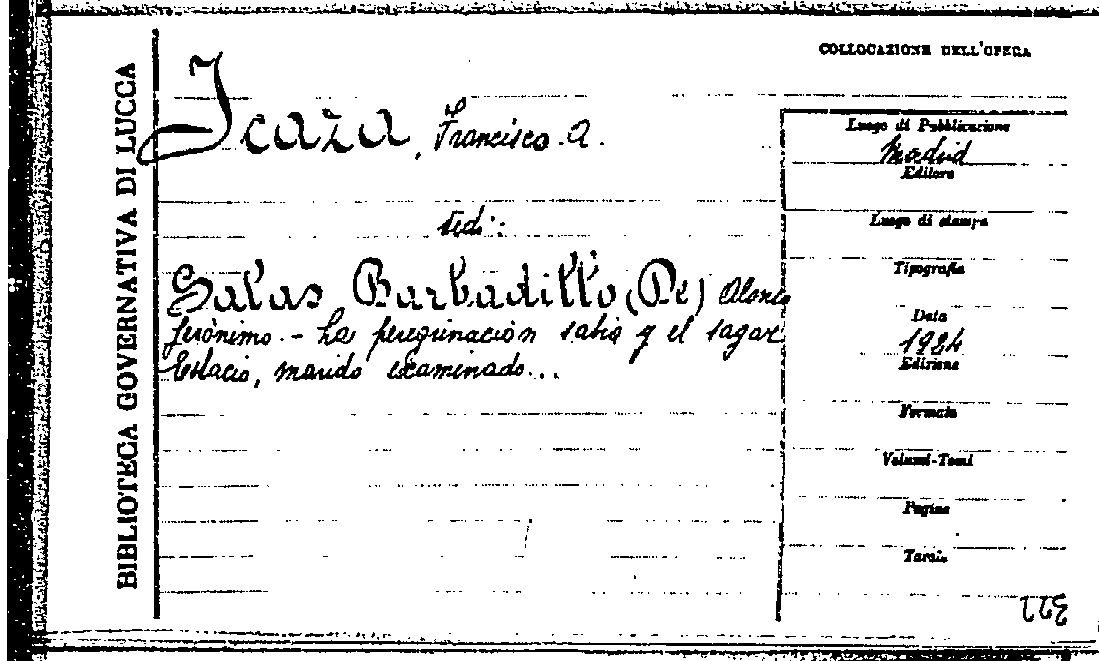 BIBLIOTECA GOVERNATIVA DI LUCCA
COLLOCAZIONE DELL'OPERA
Icaza, Francisco A.
Vedi:
Salas Barbadillo (De) Alonso
Jerónimo. - La peregrinación sabia y el sagaz
Estacio, marido examinado...
Luogo di Pubblicazione
Madrid
Editore
Luogo di stampa
Tipografia
Data
1924
Edizione
Formato
Volumi-Tomi
Pagine
Tavole
322